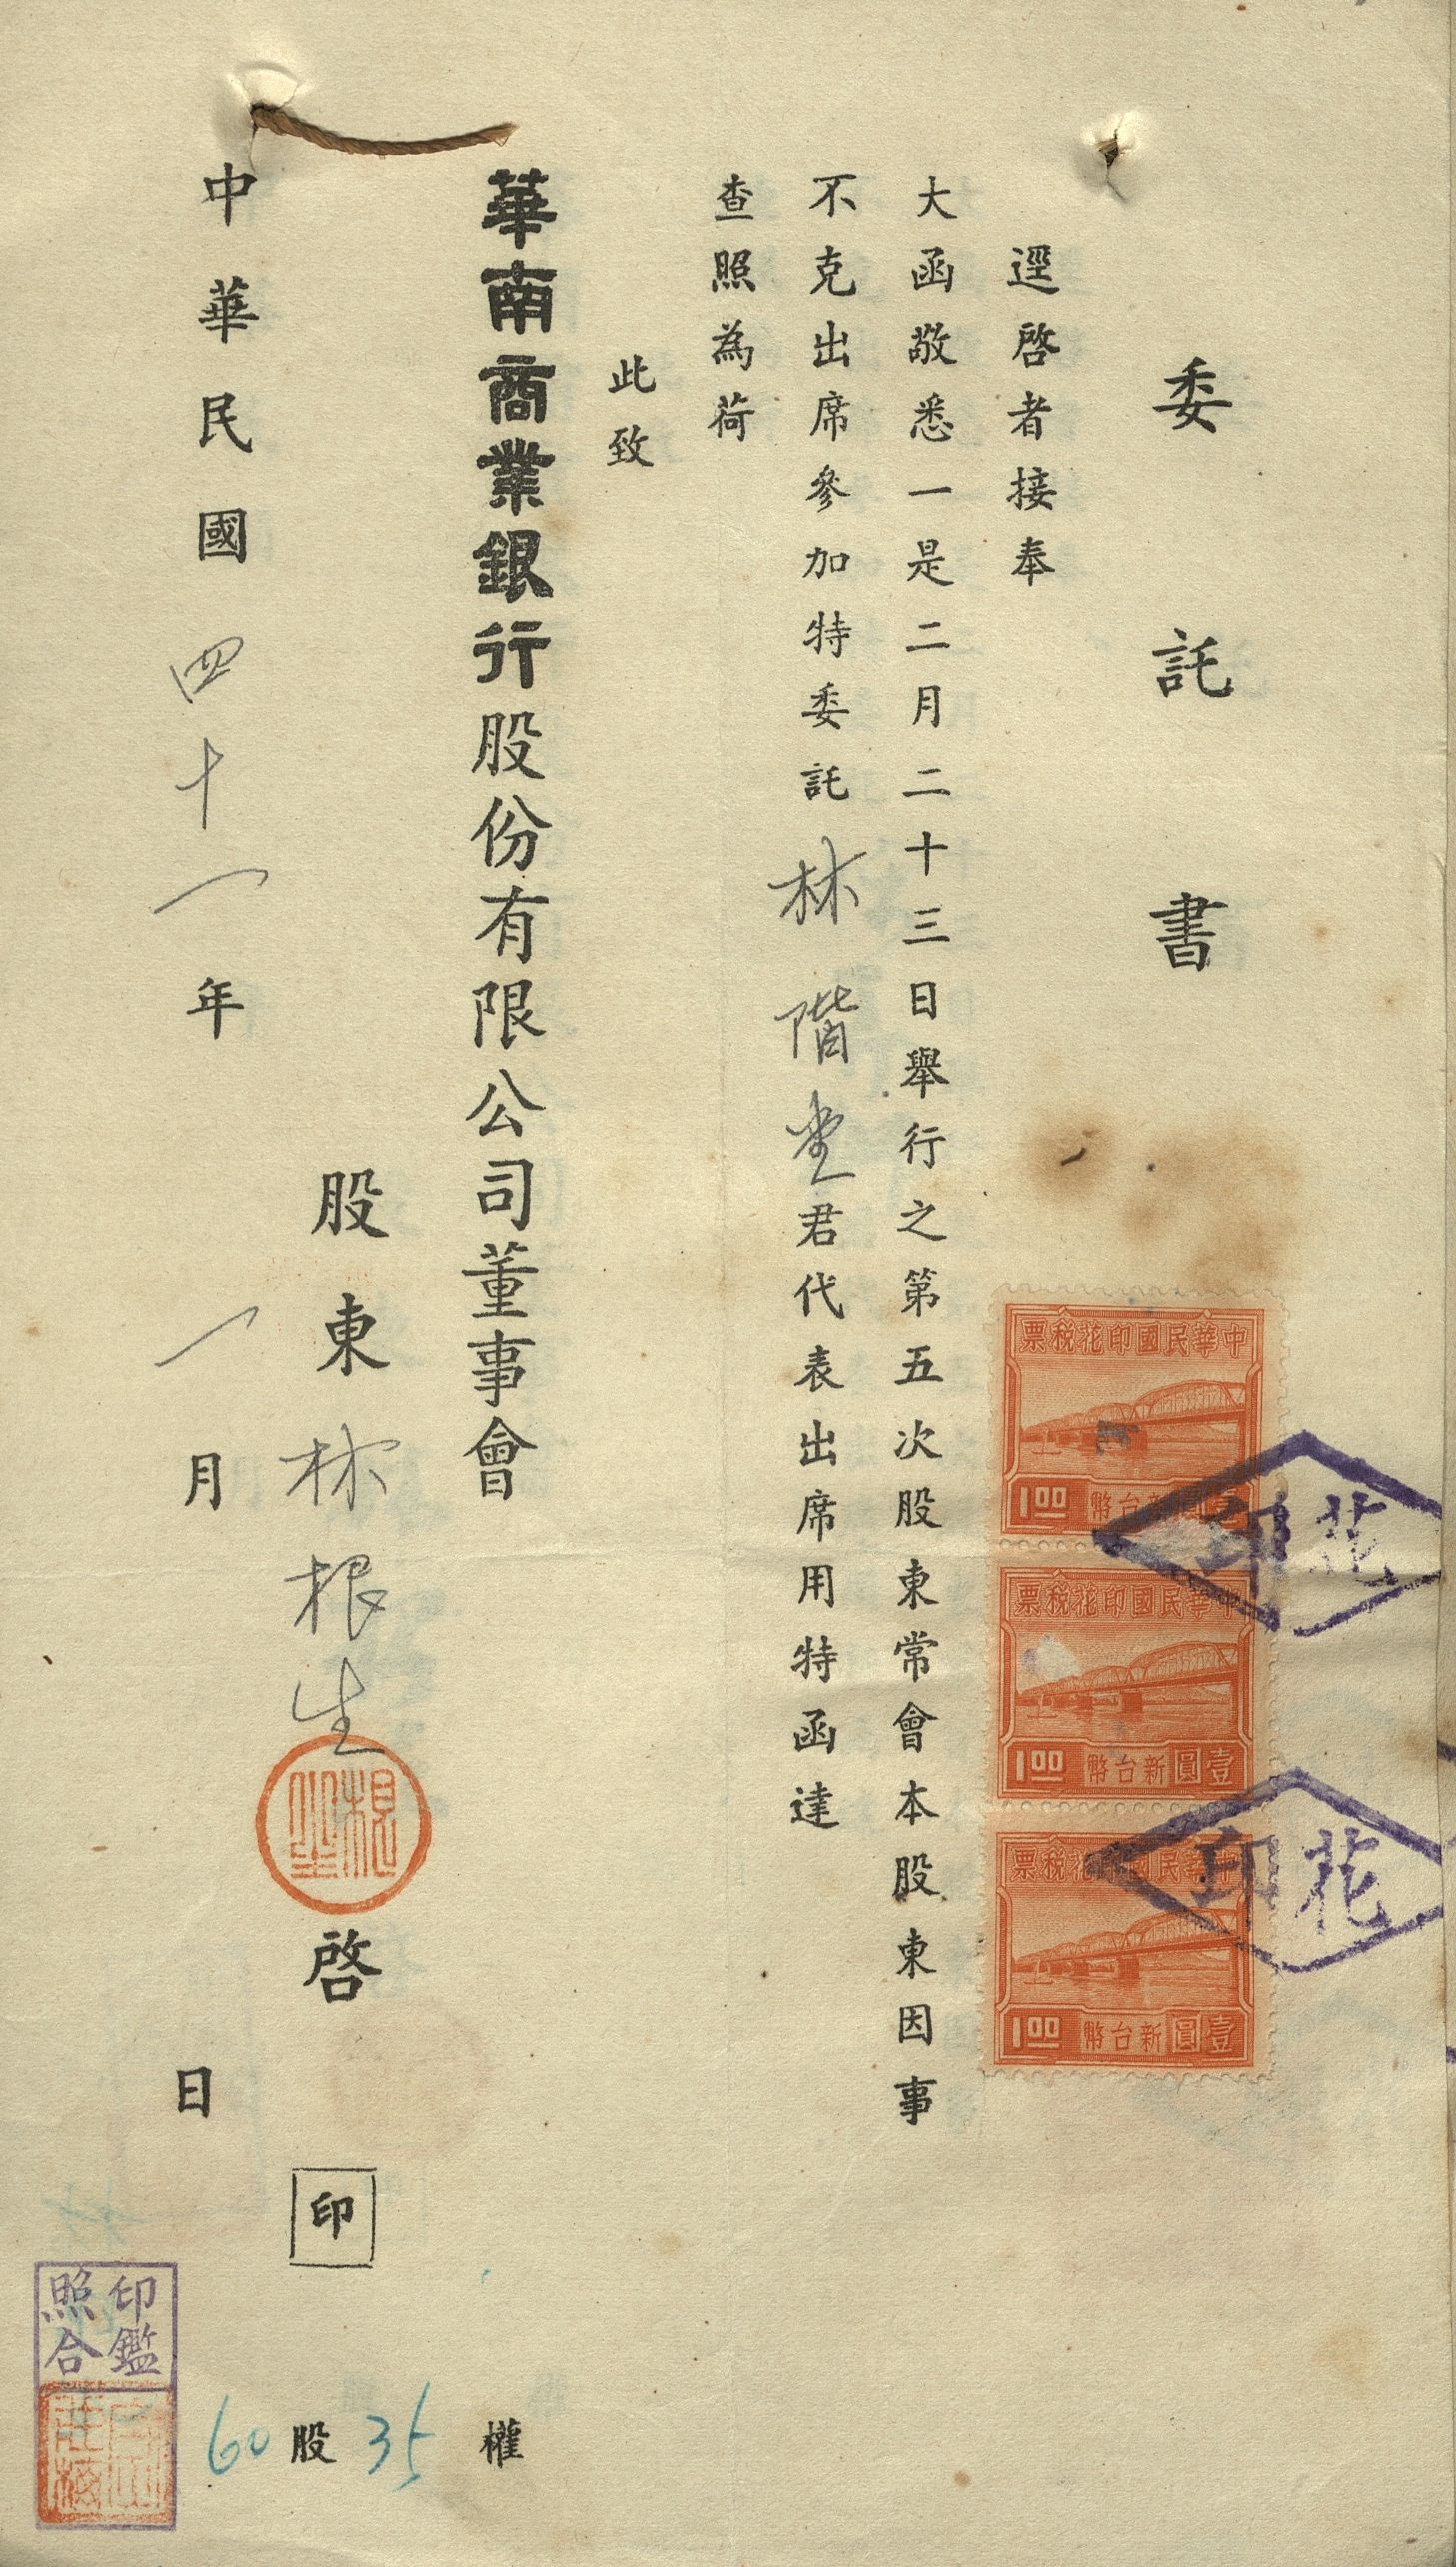 委託書
逕啓者接奉
大函敬悉一是二月二十三日舉行之第五次股東常會本股東因事
不克出席參加特委託林階堂君代表出席用特函達
查照為荷
此致
華南商業銀行股份有限公司董事會
股東林根生啓 印
中華民國四十一年一月日
60股35權
中華民國印花稅票
壹圓新台幣
1.00
中華民國印花稅票
壹圓新台幣
1.00
中華民國印花稅票
壹圓新台幣
1.00
花印
花印
根生
印鑑
照合